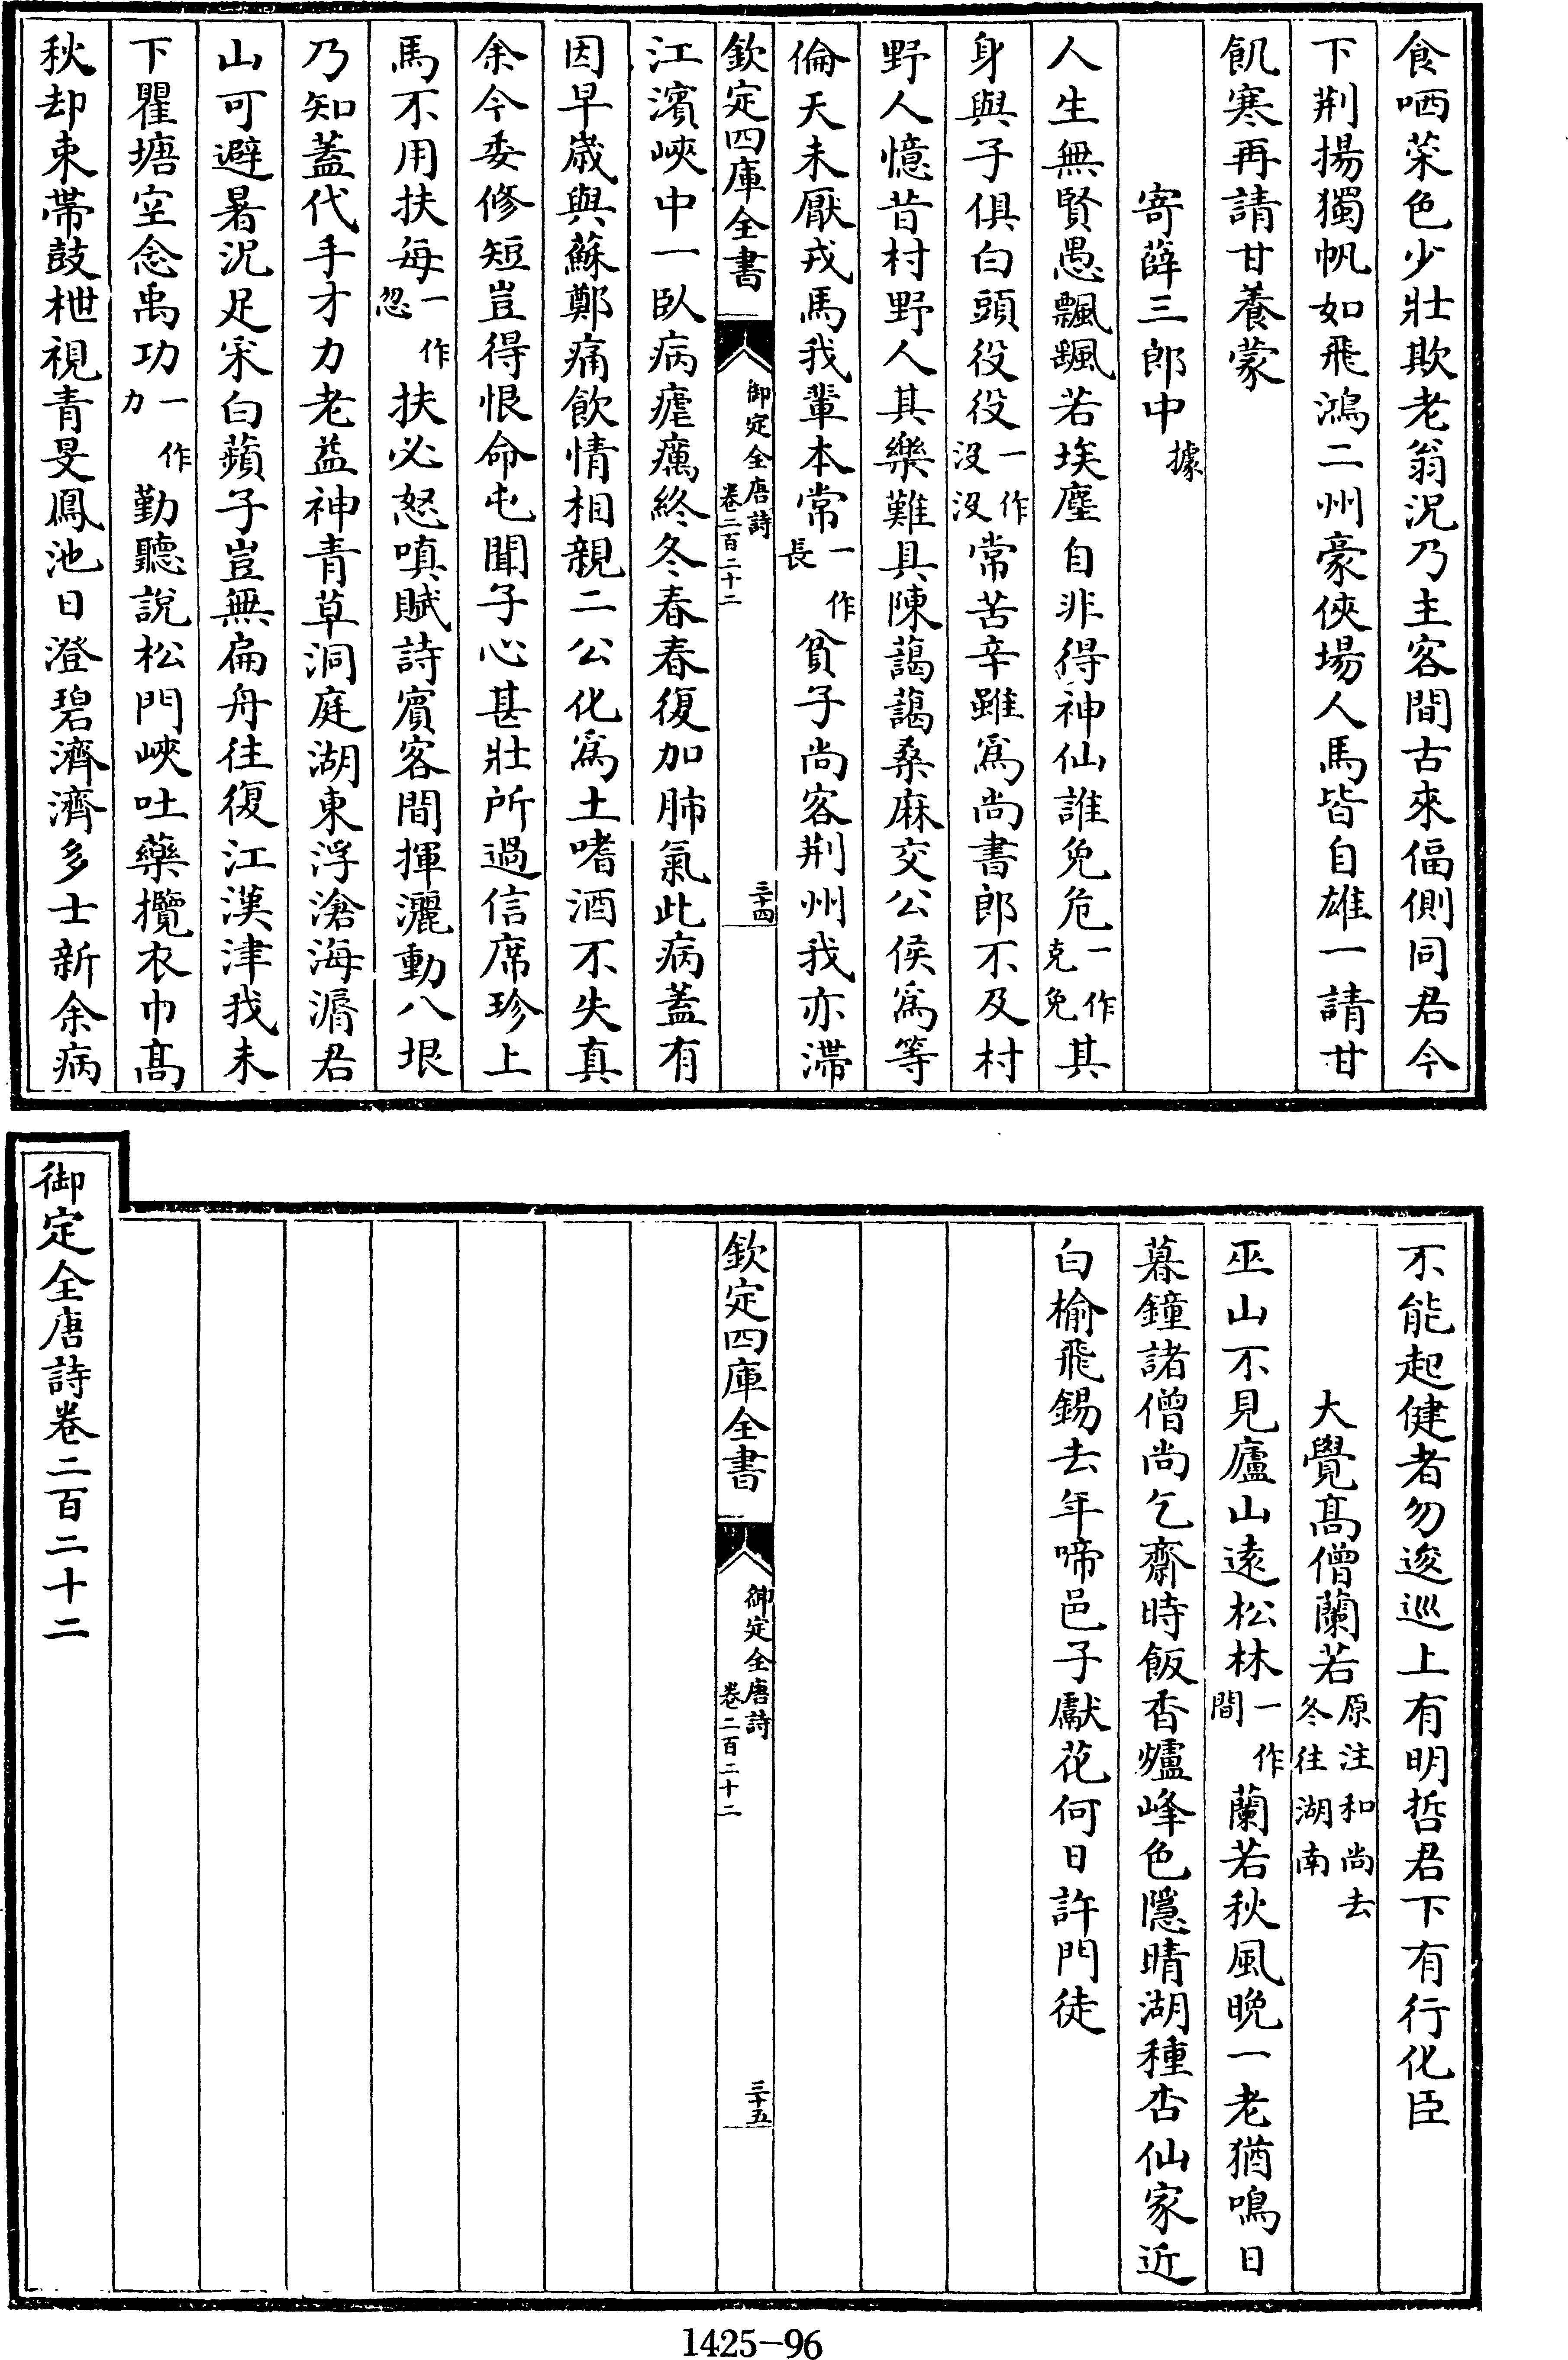 食哂菜色少壯欺老翁況乃主客間古來偪側同君今
下荆揚獨帆如飛鴻二州豪俠場人馬皆自雄一請甘
飢寒再請甘養蒙
寄薛三郎中據
人生無賢愚飄颻若埃塵自非得神仙誰免危一作克免其
身與子俱白頭役役一作沒沒常苦辛雖爲尚書郎不及村
野人憶昔村野人其樂難具陳藹藹桑麻交公侯爲等
倫天未厭戎馬我輩本常一作長貧子尚客荆州我亦滯
欽定四庫全書 御定全唐詩卷二百二十二 三十四
江濱峽中一臥病瘧癘終冬春春復加肺氣此病蓋有
因早歲與蘇鄭痛飲情相親二公化爲土嗜酒不失真
余今委修短豈得恨命屯聞子心甚壯所過信席珍上
馬不用扶每一作忽扶必怒嗔賦詩賓客間揮灑動八垠
乃知蓋代手才力老益神青草洞庭湖東浮滄海漘君
山可避暑況足采白蘋子豈無扁舟往復江漢津我未
下瞿塘空念禹功一作力勤聽説松門峽吐藥攬衣巾髙
秋却束帶鼓枻視青旻鳳池日澄碧濟濟多士新余病
不能起健者勿逡巡上有明哲君下有行化臣
大覺髙僧蘭若原注和尚去冬往湖南
巫山不見廬山遠松林一作間蘭若秋風晚一老猶鳴日
暮鐘諸僧尚乞齋時飯香爐峰色隱晴湖種杏仙家近
白榆飛錫去年啼邑子獻花何日許門徒
欽定四庫全書 御定全唐詩卷二百二十二 三十五
御定全唐詩卷二百二十二
1425-96